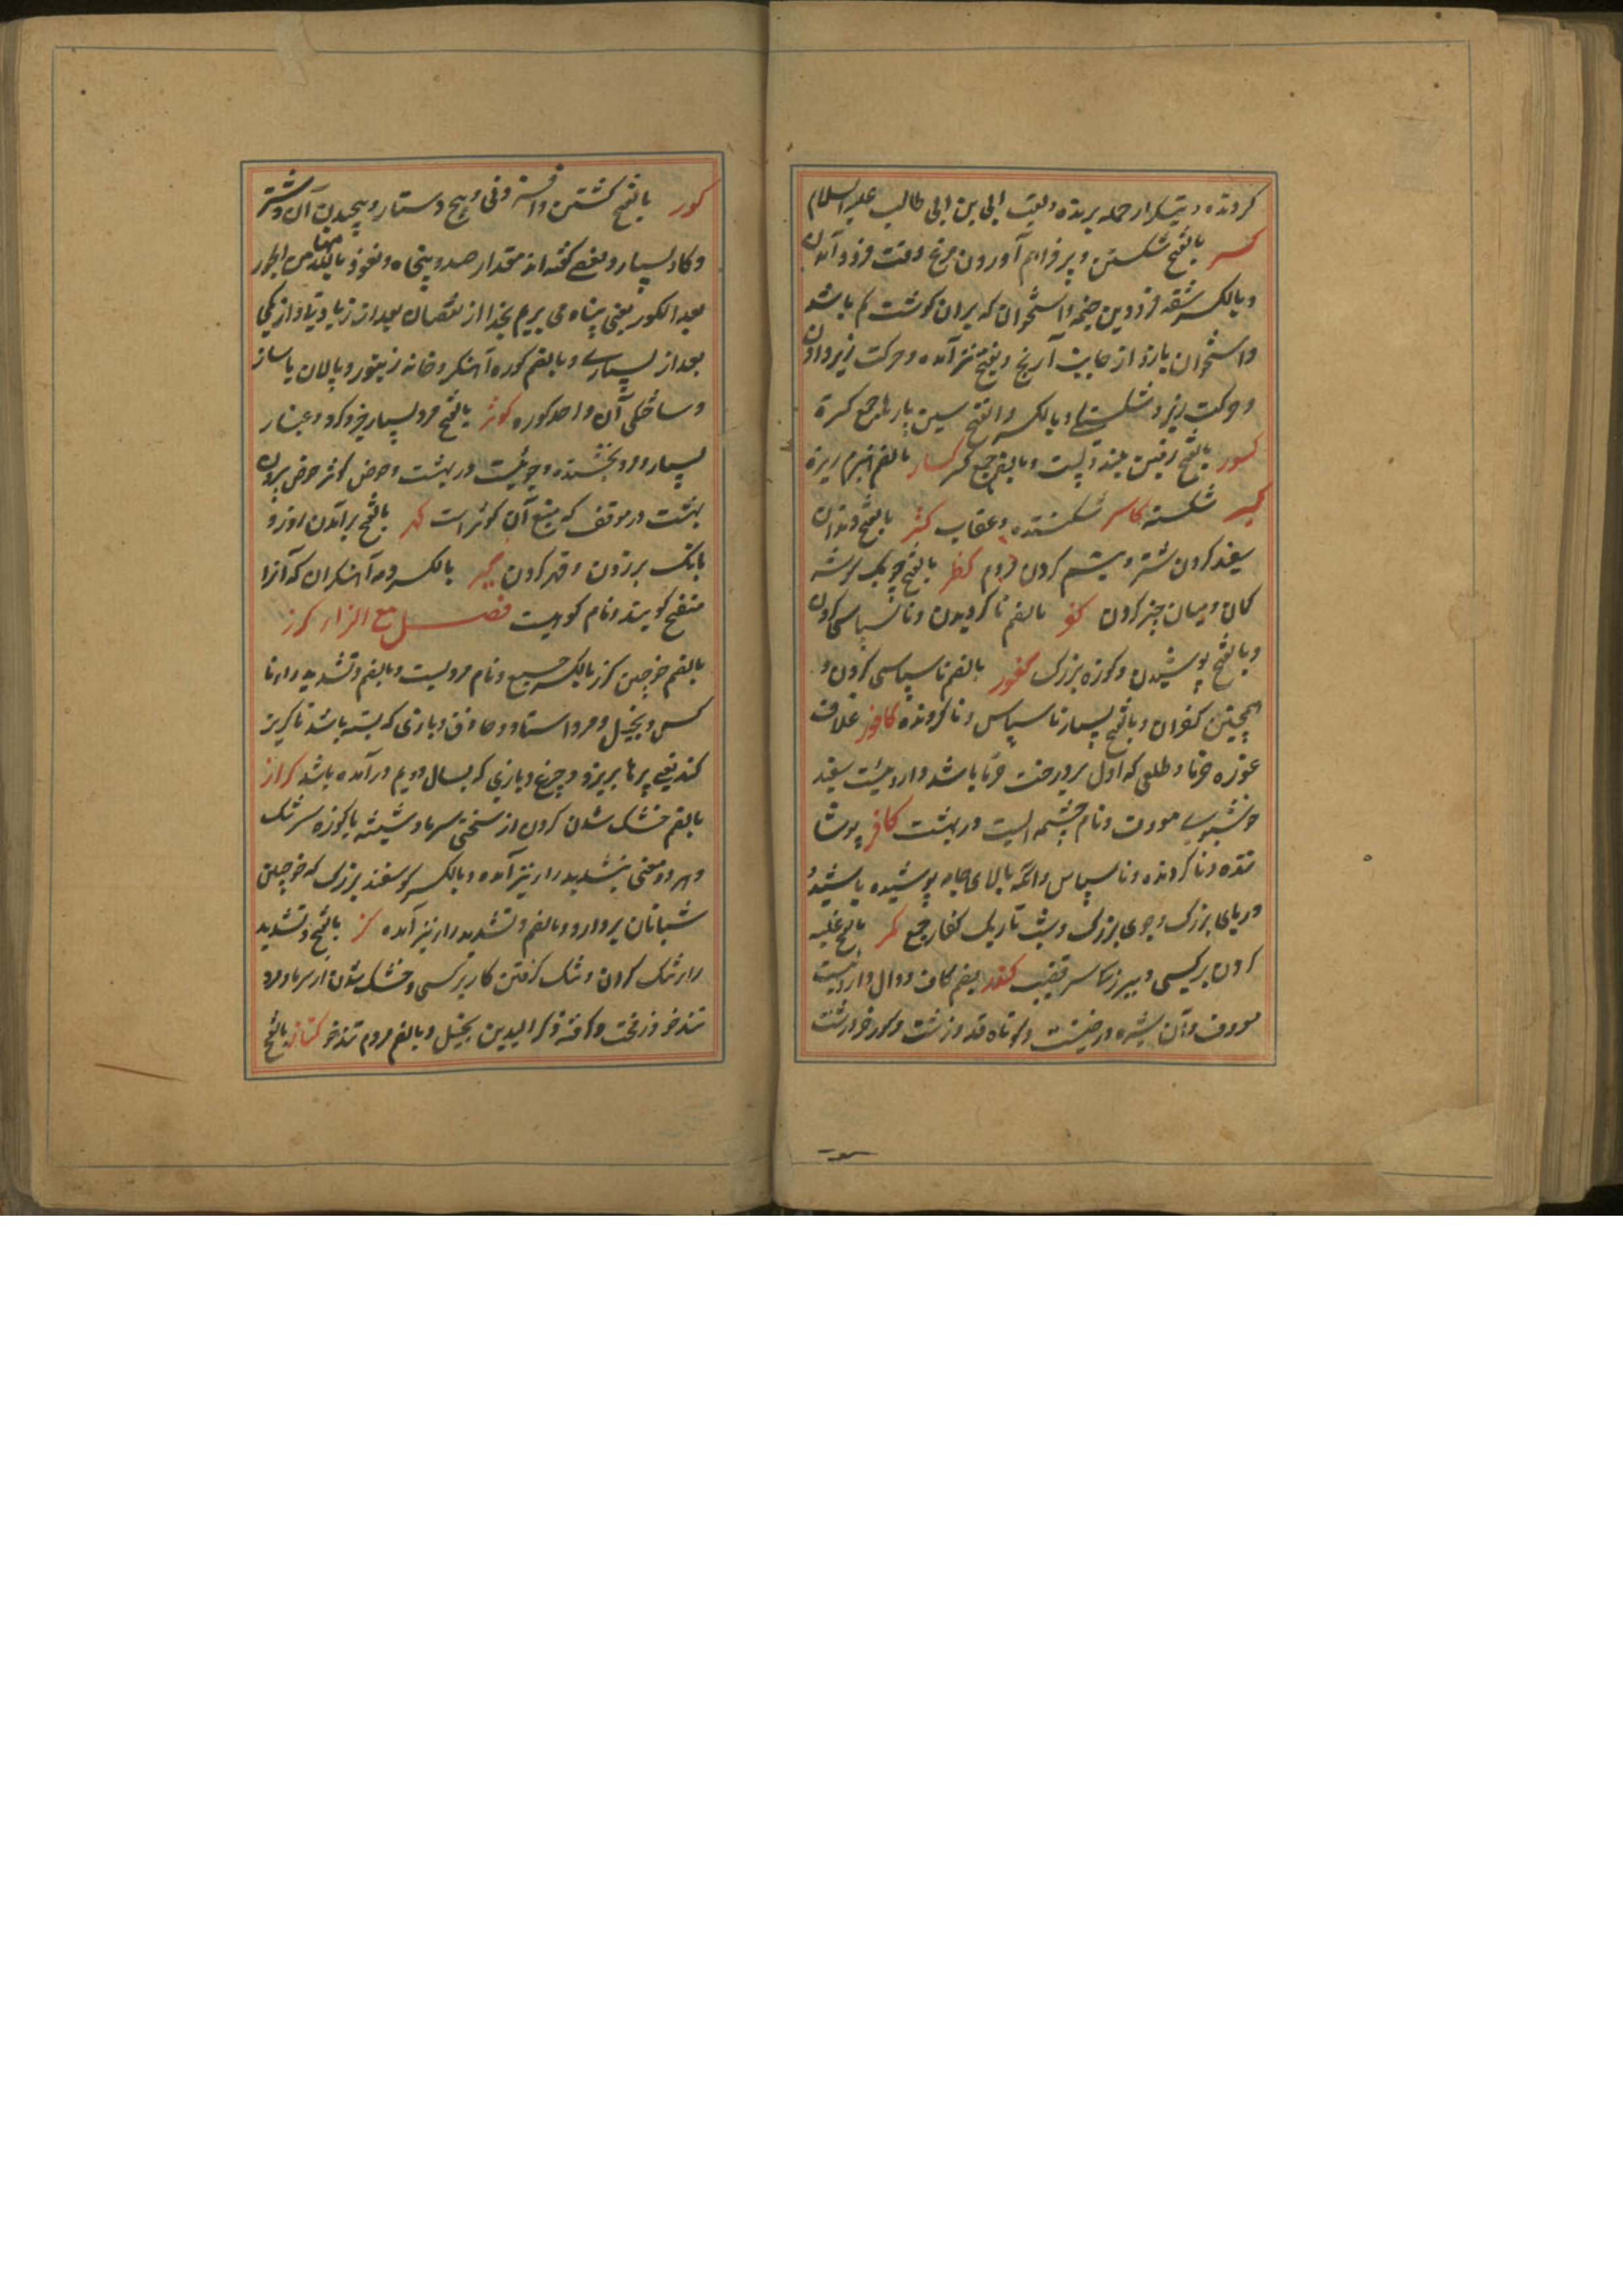 کردنده و بتکرار حمله برنده و لقب ابی بن ابی طالب علیه السلام
کسر بالفتح شکستن و پر فراهم آوردن مرغ وقت فرود آمدن
و بالکسر شقه فرودین خیمه و استخوان که بران گوشت کم باشد
و استخوان بازو از جانب آرنج و بفتح نیز آمده و حرکت زیر دادن
و حرکت زیر و شکستگی و بالکسر و الفتح سین پارها جمع کسرة
کسور بالفتح زمین بلند و پست و بالضم جمع کسر کسار بالضم هیزم ریزه
کسیر شکسته کاسر شکننده و عقاب کشر بالفتح دندان
سفید کردن شتر و تبسم کردن مردم کظر بالفتح گوشه
کمان و میان چیز کردن کفر بالضم ناگرویدن و ناسپاسی کردن
و بالفتح پوشیدن و کوزه بزرگ کفور بالضم ناسپاسی کردن و
همچنین کفران و بالفتح بسیار ناسپاس و ناگرونده کافور غلاف
غوزه خرما و طلعی که اول بر درخت خرما باشد و داروئیست سفید
خوشبوی معروف و نام چشمه ایست در بهشت کافر پوشا
ننده و ناگرونده و ناسپاس و آنکه بالای جامه پوشیده باشد و
دریای بزرگ و جوی بزرگ و شب تاریک کفار جمع کمر بالفتح غلبه
کردن بر کسی و ببزرگ سر قضیب کندر بضم کاف و دال داروئیست
معروف و آن شیره درختیست و کوتاه قد و زشت و گورخر درشت
کور بالفتح گشتن و افزونی و پیچ دستار و پیچیدن آن و شتر
و گاو بسیار و بعضی گفته اند مقدار صد و پنجاه و نعوذ بالله من الحور
بعد الکور یعنی پناه می بریم بخدا از نقصان بعد از زیادتی و از کمی
بعد از بسیاری و بالضم کوره آهنگر و خانه زنبور و پالان با ساز
و ساختگی آن واحد کوره کوثر بالفتح مرد بسیار خیر و کرد و غبار
بسیار و مرد بخشنده و جوئیست در بهشت و حوض کوثر حوض بیرون
بهشت در موقف که منبع آن کوثر است کهر بالفتح برآمدن روز و
بانگ بر زدن و قهر کردن کیر بالکسر دمه آهنگران که آنرا
منفخ گویند و نام کوهیست فصل مع الزاء کرز
بالضم خرجین کرز بالکسر جمع و نام مردیست و بالضم و تشدید راء نا
کس و بخیل و مرد استاد و حاذق و بازی که بسته باشد تا کریز
کند یعنی پرها بریزد و چرغ و بازی که بسال دویم درآمده باشد کراز
بالضم خشک شدن کردن از سختی سرما و شیشه یا کوزه سر تنگ
و هر دو معنی بتشدید راء نیز آمده و بالکسر گوسفند بزرگ که خرجین
شبانان بردارد و بالضم و تشدید راء نیز آمده کز بالفتح و تشدید
زاء تنگ کردن و تنگ گرفتن کار بر کسی و خشک شدن از سرما و مرد
تندخو و زفت و کزّ الیدین بخیل و بالضم مردم تندخو کناز بالفتح